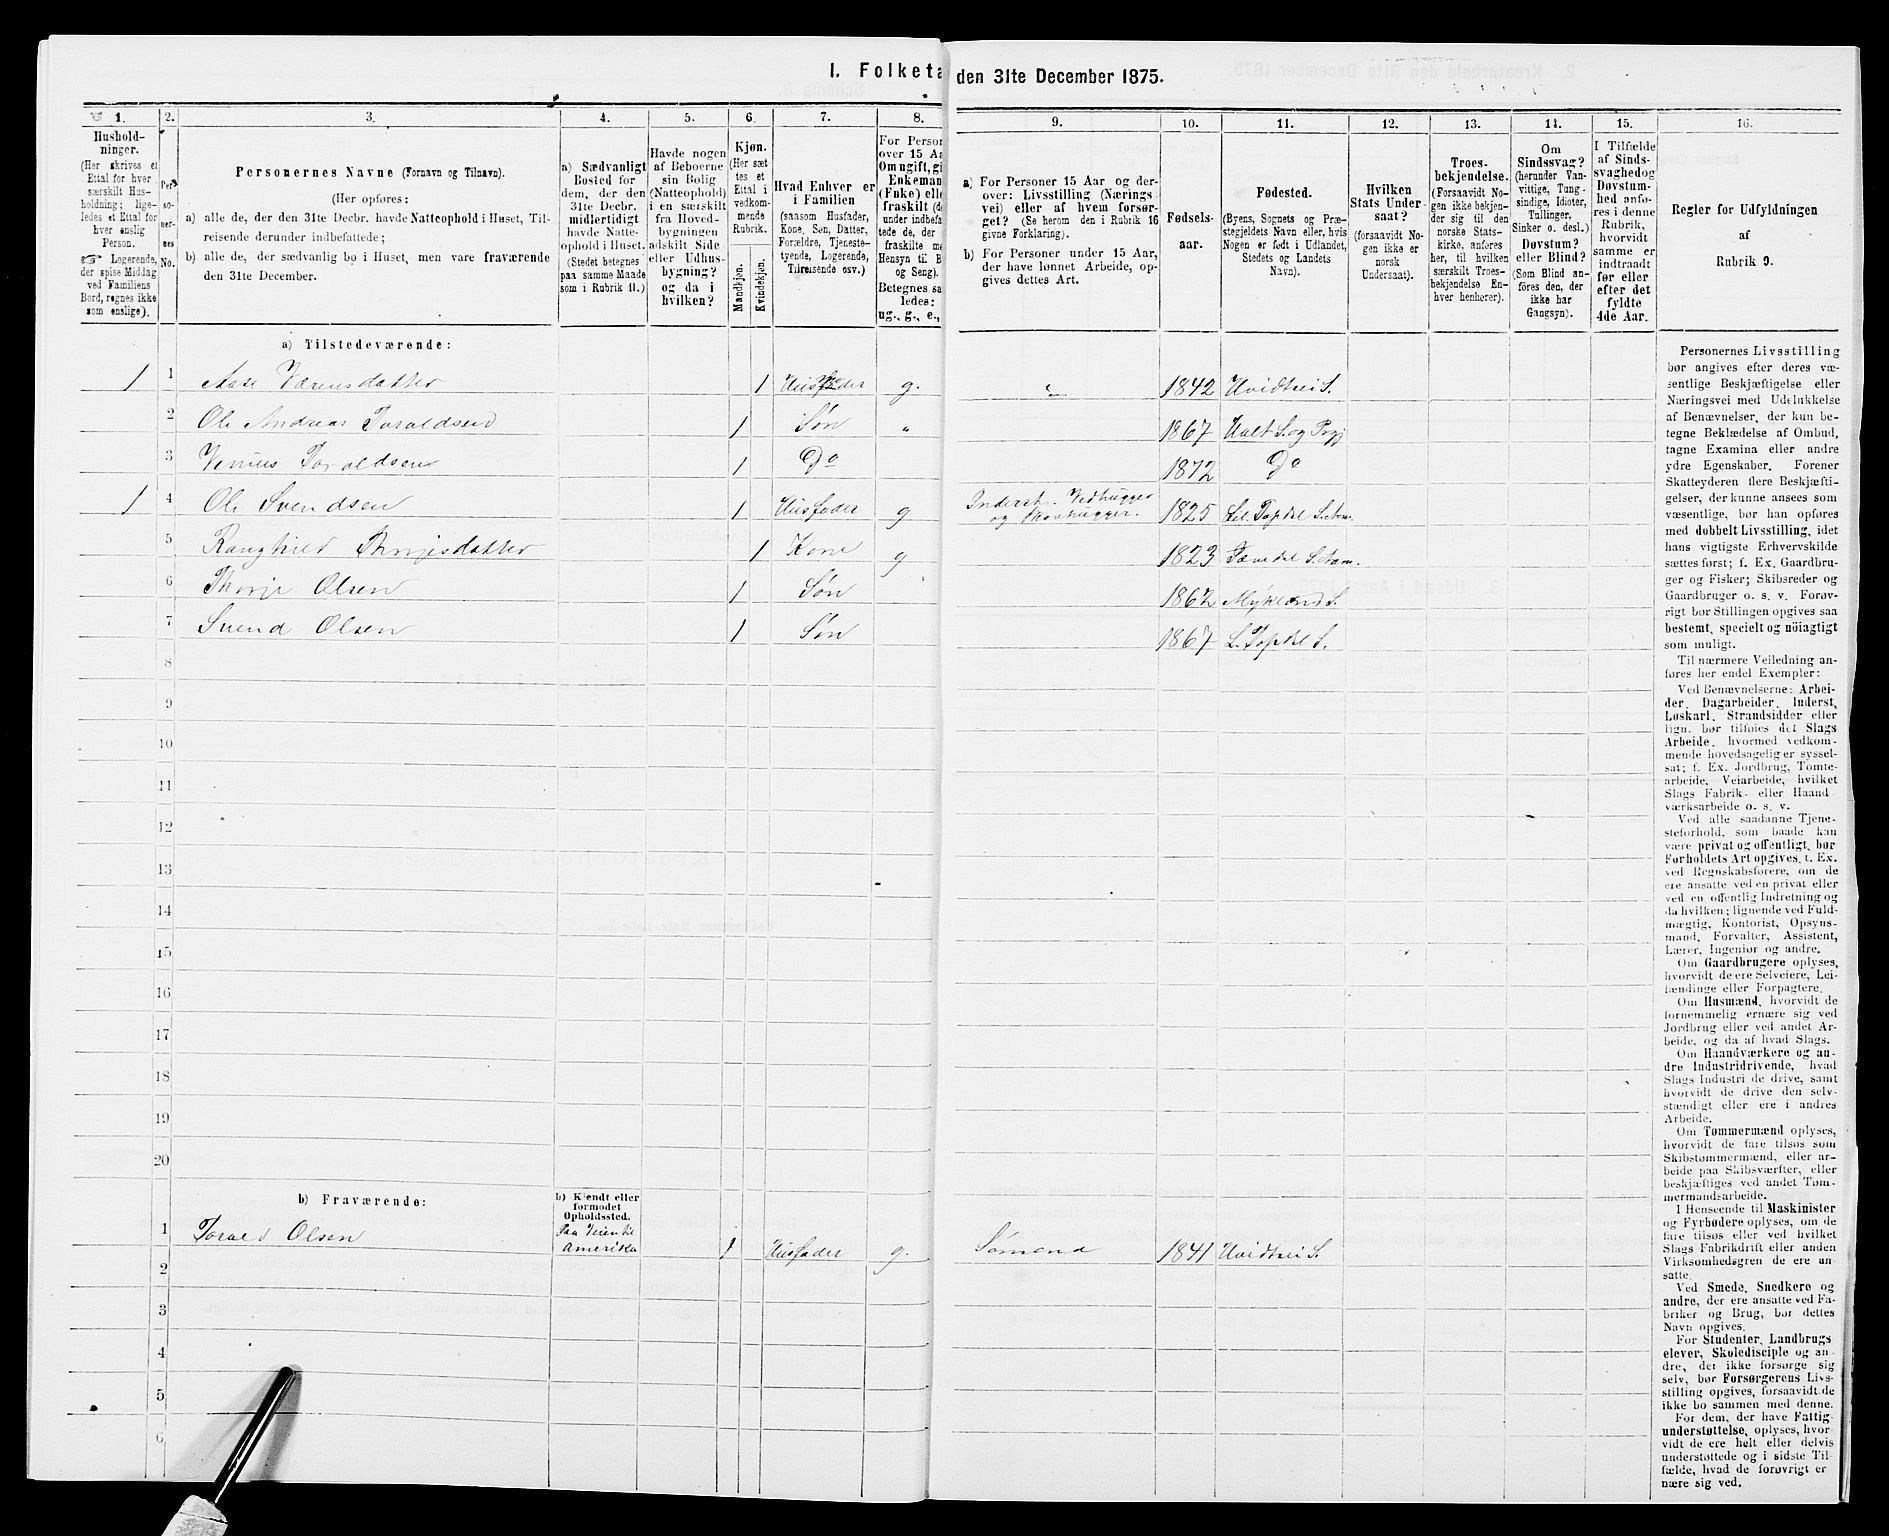 I. Folketæ
den 31te December 1875.
1.
2.
3.
4.
5.
6.
7.
8.
9.
10.
11.
12.
13.
14.
15.
16.
Hushold-
ninger.
(Her skrives et
Ettal for hver
særskilt Hus-
holdning; lige-
ledes et Ettal for
hver enslig
Person.
☞ Logerende,
der spise Middag
ved Familiens
Bord, regnes ikke
som enslige).
Per-
so-
ner-
nes
No.
Personernes Navne (Fornavn og Tilnavn).
(Her opføres:
a) alle de, der den 31te Decbr. havde Natteophold i Huset, Til-
reisende derunder indbefattede;
b) alle de, der sædvanlig bo i Huset, men vare fraværende
den 31te December.
a) Sædvanligt
Bosted for
dem, der den
31te Decbr.
midlertidigt
havde Natte-
ophold i Huset.
(Stedet betegnes
paa samme Maade
som i Rubrik 11.)
Havde nogen
af Beboerne
sin Bolig
(Natteophold)
i en særskilt
fra Hoved-
bygningen
adskilt Side-
eller Udhus-
bygning?
og da i
hvilken?
Kjøn.
(Her sæt
tes et
Ettal i
vedkom-
mende
Rubrik.
Mandkjøn.
Kvindekjøn.
Hvad Enhver er
i Familien
(saasom Husfader,
Kone, Søn, Datter,
Forældre, Tjeneste-
tyende, Logerende,
Tilreisende osv.)
For Person
over 15 Aa
Om ugift, gi
Enkeman
(Fuke) elle
fraskilt (d
under indbefa
tede de, der
fraskilte me
Hensyn til B
og Seng).
Betegnes sa
ledes:
ug., g., e.,
a) For Personer 15 Aar og der-
over: Livsstilling (Nærings
vei) eller af hvem forsør-
get? (Se herom den i Rubrik 16
givne Forklaring).
b) For Personer under 15 Aar,
der have lønnet Arbeide, op-
gives dettes Art.
Fødsels-
aar.
Fødested.
(Byens, Sognets og Præ-
stegjeldets Navn eller, hvis
Nogen er født i Udlandet,
Stedets og Landets
Navn).
Hvilken
Stats Under-
saat?
(forsaavidt No-
gen ikke er
norsk
Undersaat).
Troes-
bekjendelse.
(Forsaavidt No-
gen ikke bekjen-
der sig til den
norske Stats-
kirke, anføres
her, til hvilken
særskilt Troes-
bekjendelse En-
hver henhører).
Om
Sindssvag?
(herunder Van-
vittige, Tung-
sindige, Idioter,
Tullinger,
Sinker o. desl.)
Døvstum?
eller Blind?
(Som Blind an-
føres den, der
ikke har
Gangsyn).
I Tilfælde
af Sinds-
svaghed og
Døvstum-
hed anfø-
res i denne
Rubrik,
hvorvidt
samme er
indtraadt
før eller
efter det
fyldte
4de Aar.
Regler for Udfyldningen
af
Rubrik 9.
a) Tilstedeværende:
1 1 Aase Værensdatter 1 Husfader g. " 1842 Hvidtsei S.
2 Ole Andreas Toraldsen 1 Søn " 1867 Holt S. og Pgj
3 Venius Toraldsen 1 Do 1872 Do
1 4 Ole Svendsen 1 Husfader g Inderst. Vedhugger
og Skovhugger. 1825
5 Ranghild Thorjesdatter 1 Kone g 1823
6 Thorje Olsen 1 Søn 1862 Mykland S.
7 Svend Olsen 1 Søn 1867 L. Topdal S.
8
9
10
11
12
13
14
15
16
17
18
19
20
b) Fraværende:
b) Kjendt eller
formodet
Opholdssted.
1 Torald Olsen Paa Veien til
Amerika 1 Husfader g. Sømand 1841 Hvidtsei S.
2
3
4
5
6
Personernes Livsstilling
bør angives efter deres væ-
sentlige Beskjæftigelse eller
Næringsvei med Udelukkelse
af Benævnelser, der kun be-
tegne Beklædelse af Ombud,
tagne Examina eller andre
ydre Egenskaber. Forener
Skatteyderen flere Beskjæfti-
gelser, der kunne ansees som
væsentlige, bør han opføres
med dobbelt Livsstilling, idet
hans vigtigste Erhvervskilde
sættes først; f. Ex. Gaardbru-
ger og Fisker; Skibsreder og
Gaardbruger o. s. v. Forøv-
rigt bør Stillingen opgives saa
bestemt, specielt og nöiagtigt
som muligt.
Til nærmere Veiledning an-
føres her endel Exempler:
Ved Benævnelserne: Arbei-
der, Dagarbeider, Inderst,
Løskarl, Strandsidder eller
lign. bør tilføies det Slags
Arbeide, hvormed vedkom-
mende hovedsagelig er syssel-
sat; f. Ex. Jordbrug, Tomte-
arbeide, Veiarbeide, hvilket
Slags Fabrik- eller Haand-
værksarbeide o. s. v.
Ved alle saadanne Tjene-
steforhold, som baade kan
være privat og offentligt, bør
Forholdets Art opgives, t. Ex.
ved Regnskabsførere, om de
ere ansatte ved en privat eller
ved en offentlig Indretning og
da hvilken; lignende ved Fuld-
mægtig, Kontorist, Opsyns-
mand, Forvalter, Assistent,
Lærer, Ingeniør og andre.
Om Gaardbrugere oplyses,
hvorvidt de ere Selveiere, Lei-
lændinge eller Forpagtere.
Om Husmænd, hvorvidt de
fornemmelig ernære sig ved
Jordbrug eller ved andet Ar-
beide, og da af hvad Slags.
Om Haandværkere og an-
dre Industridrivende, hvad
Slags Industri de drive, samt
hvorvidt de drive den selv-
stændigt eller ere i andres
Arbeide.
Om Tømmermænd oplyses,
hvorvidt de fare tilsøs som
Skibstømmermænd, eller ar-
beide paa Skibsværfter, eller
beskjæftiges ved andet Tøm-
mermandsarbeide.
I Henseende til Maskinister
og Fyrbødere oplyses, om de
fare tilsøs eller ved hvilket
Slags Fabrikdrift eller anden
Virksomhedsgren de ere an-
satte.
Ved Smede, Snedkere og
andre, der ere ansatte ved Fa-
briker og Brug, bør dettes
Navn opgives.
For Studenter, Landbrugs
elever, Skoledisciple og an-
dre, der ikke forsørge sig
selv, bør Forsørgerens Livs-
stilling opgives, forsaavidt de
ikke bo sammen med denne.
For dem, der have Fattig-
understøttelse, oplyses, hvor-
vidt de ere helt eller delvis
understøttede og i sidste Til-
fælde, hvad de forøvrigt er
nære sig ved.